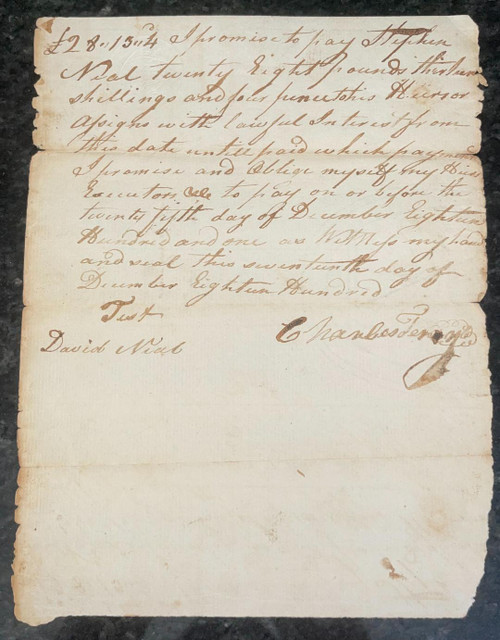 £28"13"4 I promise to pay Stephen
Neal twenty Eight pounds thirteen
shillings and four pence his Heirs or
assigns with lawful Interest from
this date untill paid which payment
I promise and Oblige myself my Heirs
Executors, &c to pay on or before the
twenty fifth day of December Eighteen
Hundred and one as Witness my hand
and seal this seventeenth day of
December Eighteen Hundred
Test
David Neal
Charles